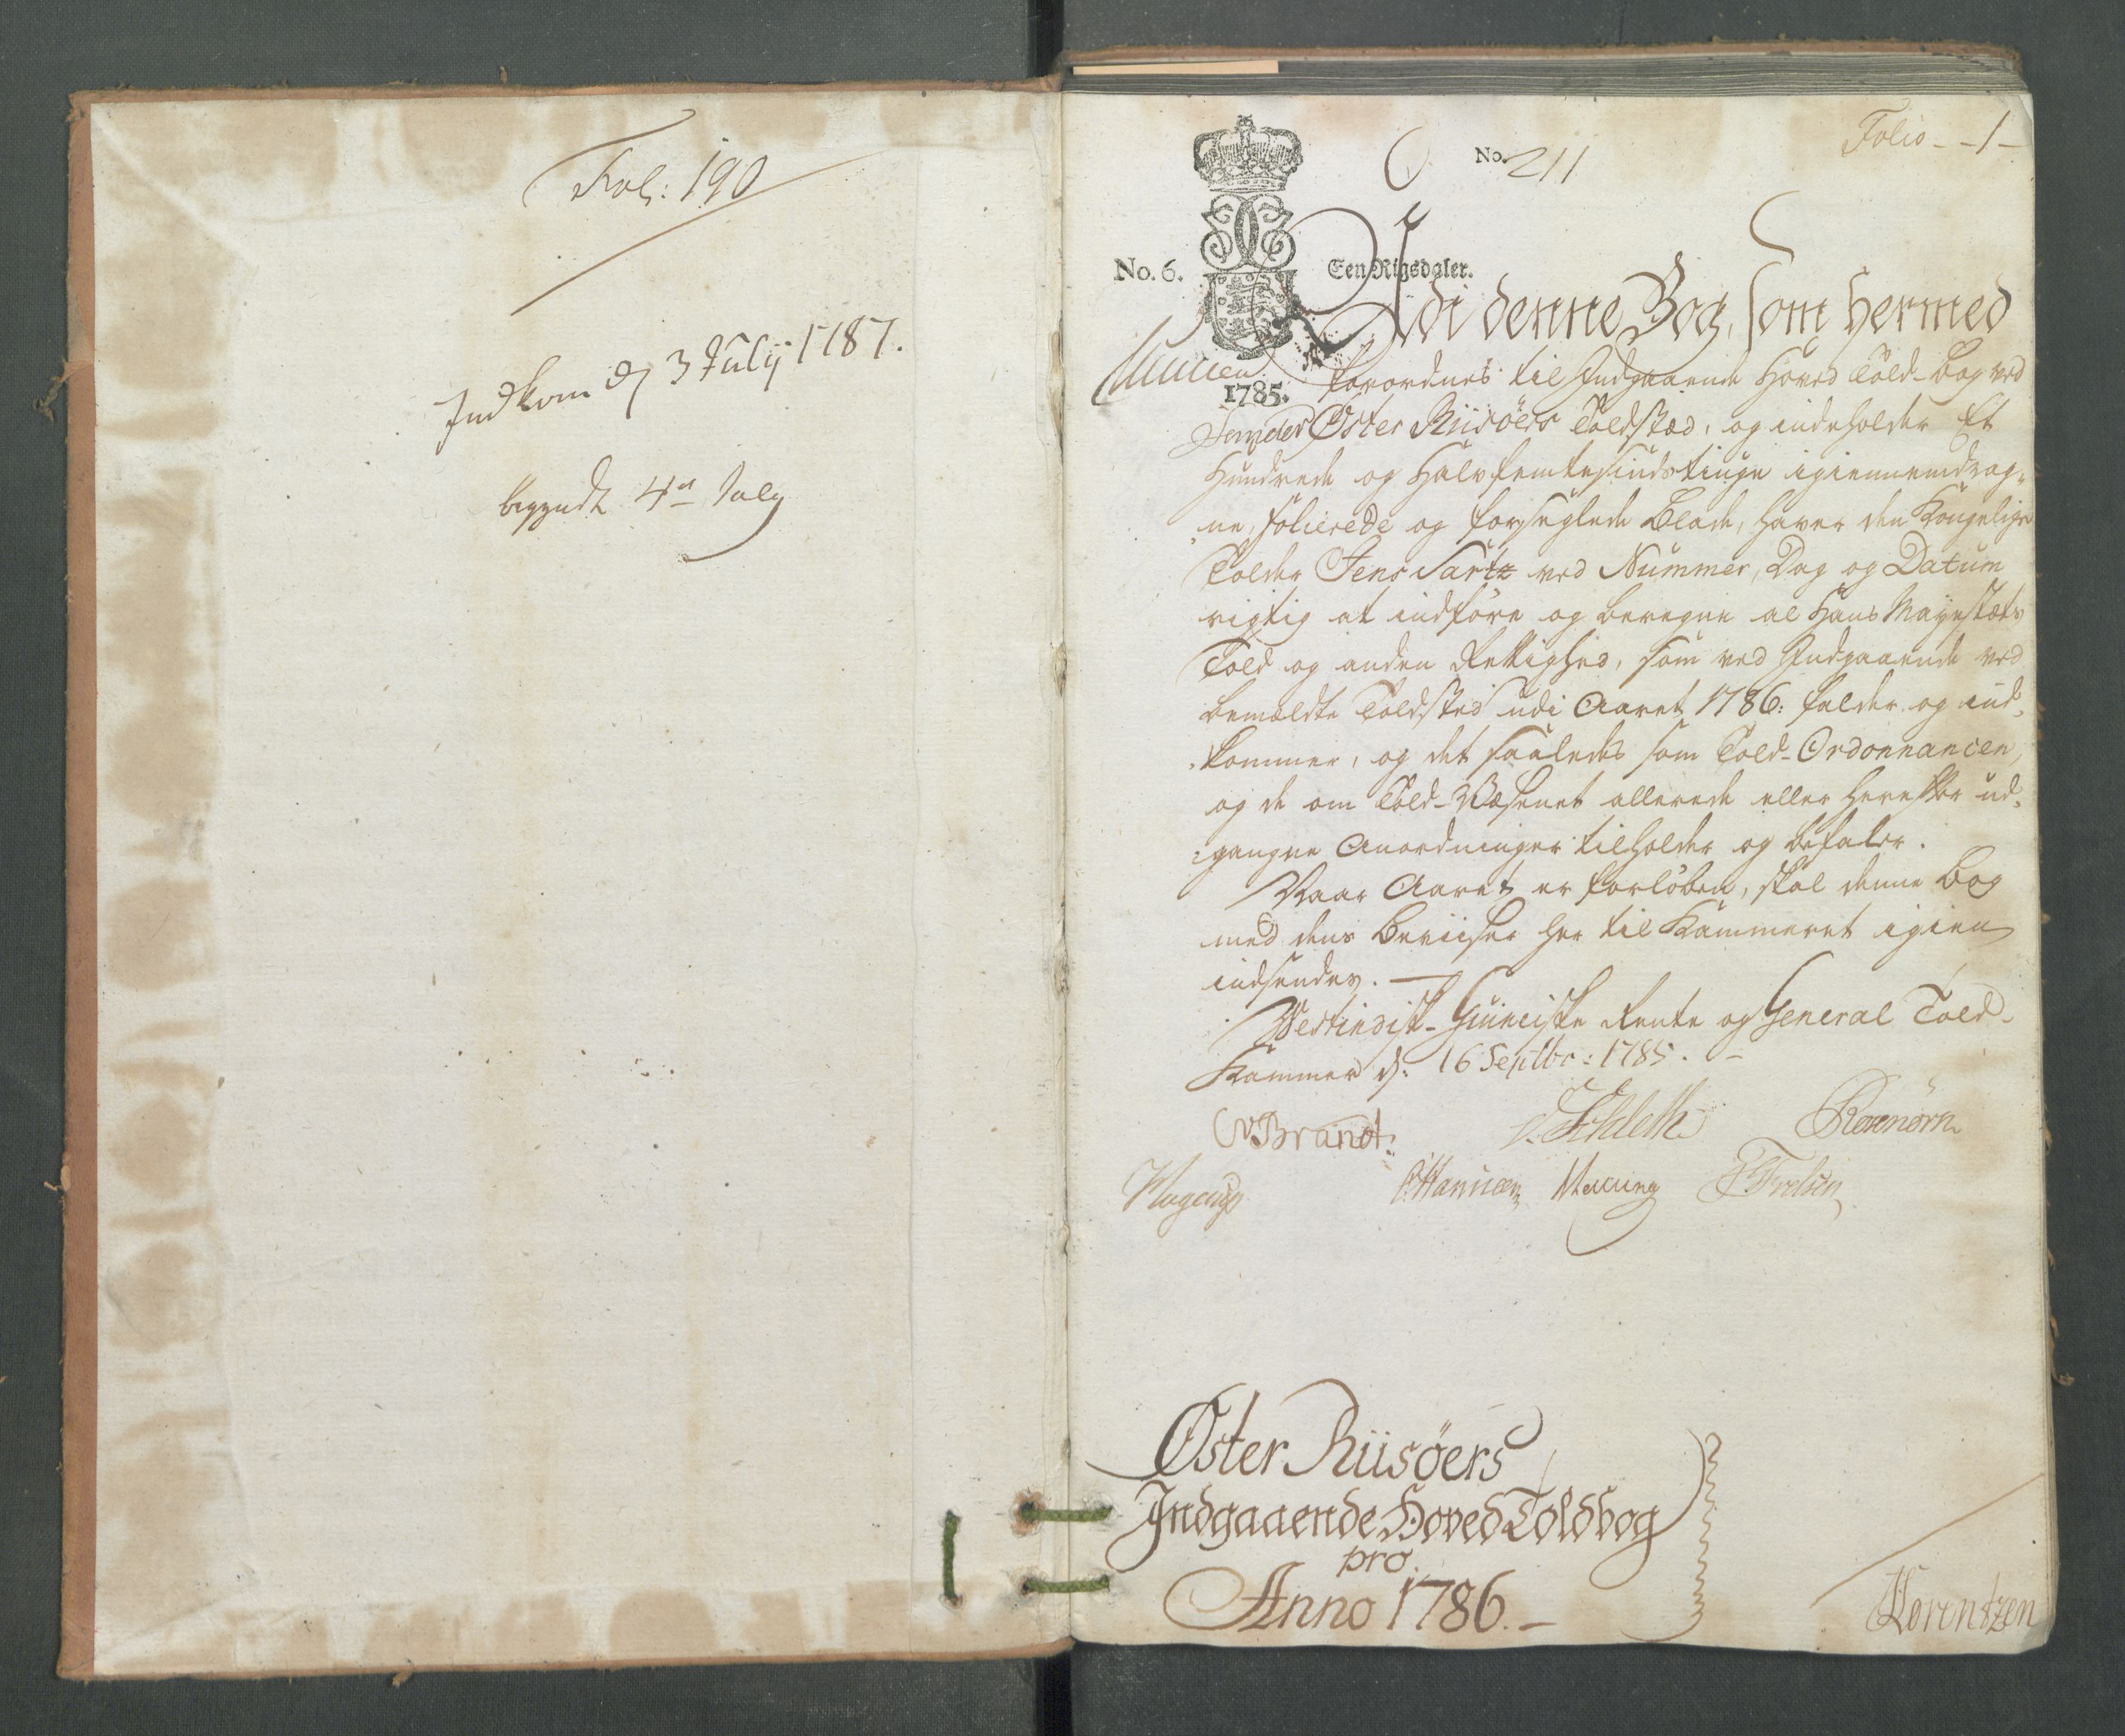 Fol: 190
Indkom d 3 Julij 1787.
begyndt 4de July
Folio - 1 -
No. 211
No. 6.
Een Rigsdaler.
1785.
Udi denne Bog, som hermed
forordnes til Indgaaende Hoved Told-Bog ved
Øster Riisöers Toldsted, og indeholder Et
Hundrede og Halvfemtesindstiuge igiennemdrag-
ne, folierede og forseglede Blade, haver den Kongelige
Tolder Jens Sartz ved Nummer, Dag og Datum
rigtig at indføre og beregne al Hans Mayestæts
Told og anden Rettighed, som ved Indgaaende ved
bemældte Toldsted udi Aaret 1786: falder og ind-
kommer, og det saaledes som Told-Ordonnancen,
og de om Told-Væsenet allerede eller herefter ud-
gangne Anordninger tilholder og befaler.
Naar Aaret er forløben, skal denne Bog
med dens Beviiser her til Kammeret igien
indsendes. —
Westindisk-Guineiske Rente og General Told-
Kammer d: 16 Septbr: 1785. —
Brandt
Hagerup
Øster Riisöers
Indgaaende Hoved Toldbog
pro
Anno 1786. —
Lorentzen